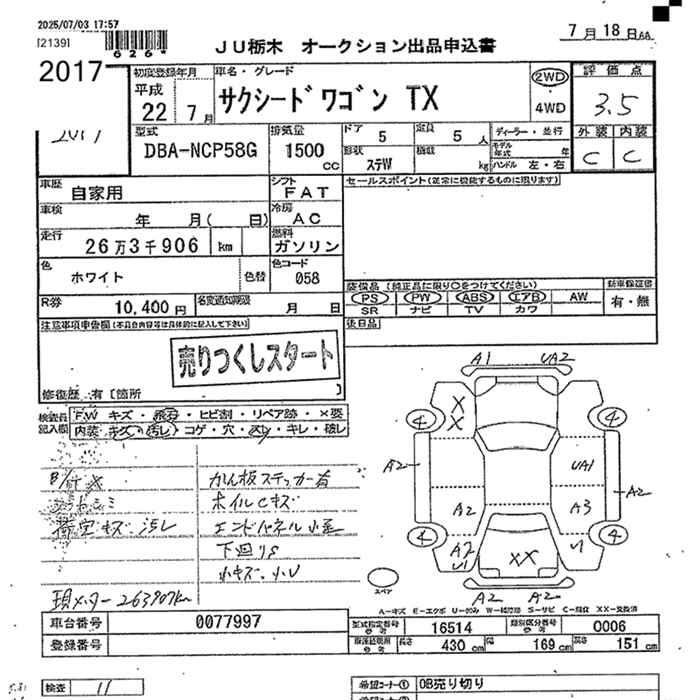 2025/07/03 17:57
[2139]
626
JU栃木 オークション出品申込書
7月18日
2017
2017
初度登録年月
平成
22 7月
車名・グレード
サクシードワゴン TX
2WD
4WD
評価点
3.5
外装 内装
C C
型式
DBA-NCP58G
排気量
1500
CC
ドア
5
定員
5
人
形状
ステW
積載
kg
ディーラー・並行
モデル年式
年
ハンドル 左・右
車歴
自家用
シフト
FAT
セールスポイント(正常に機能するものに限ります)
車検
年 月( 日)
冷房
AC
走行
26万3千906 km
燃料
ガソリン
色
ホワイト
色替
色コード
058
装備品 (純正品に限り○をつけてください)
PS PW ABS エアB AW
SR ナビ TV カワ
新車保証書
有・無
R券
10,400円
名変通知期限
月 日
注意事項申告欄
後日品
売りつくしスタート
修復歴 有 [箇所 ]
検査員
記入欄
F.W キズ・飛石・ヒビ割・リペア跡・×要
内装 キズ・汚レ・コゲ・穴・スレ・キレ・破レ
カンバンステッカー有
ホイルCキズ
荷室キズ 汚レ
エンドパネル小歪
下回りS
小キズ、小U
現メーター 263907km
A1 UA2
X
X
4 4
A2
UA1
A2
A2
A3
A2
U1
U1
4 4
XX
A2 A2
スペア
A-キズ E-エクボ U-凹み W-補修跡 S-サビ C-腐食 XX-交換済
車台番号
0077997
型式指定番号
参考
16514
類別区分番号
参考
0006
登録番号
長さ
430 cm
幅
169 cm
高さ
151 cm
検査
11
希望コーナー①
0B売り切り
希望コーナー②